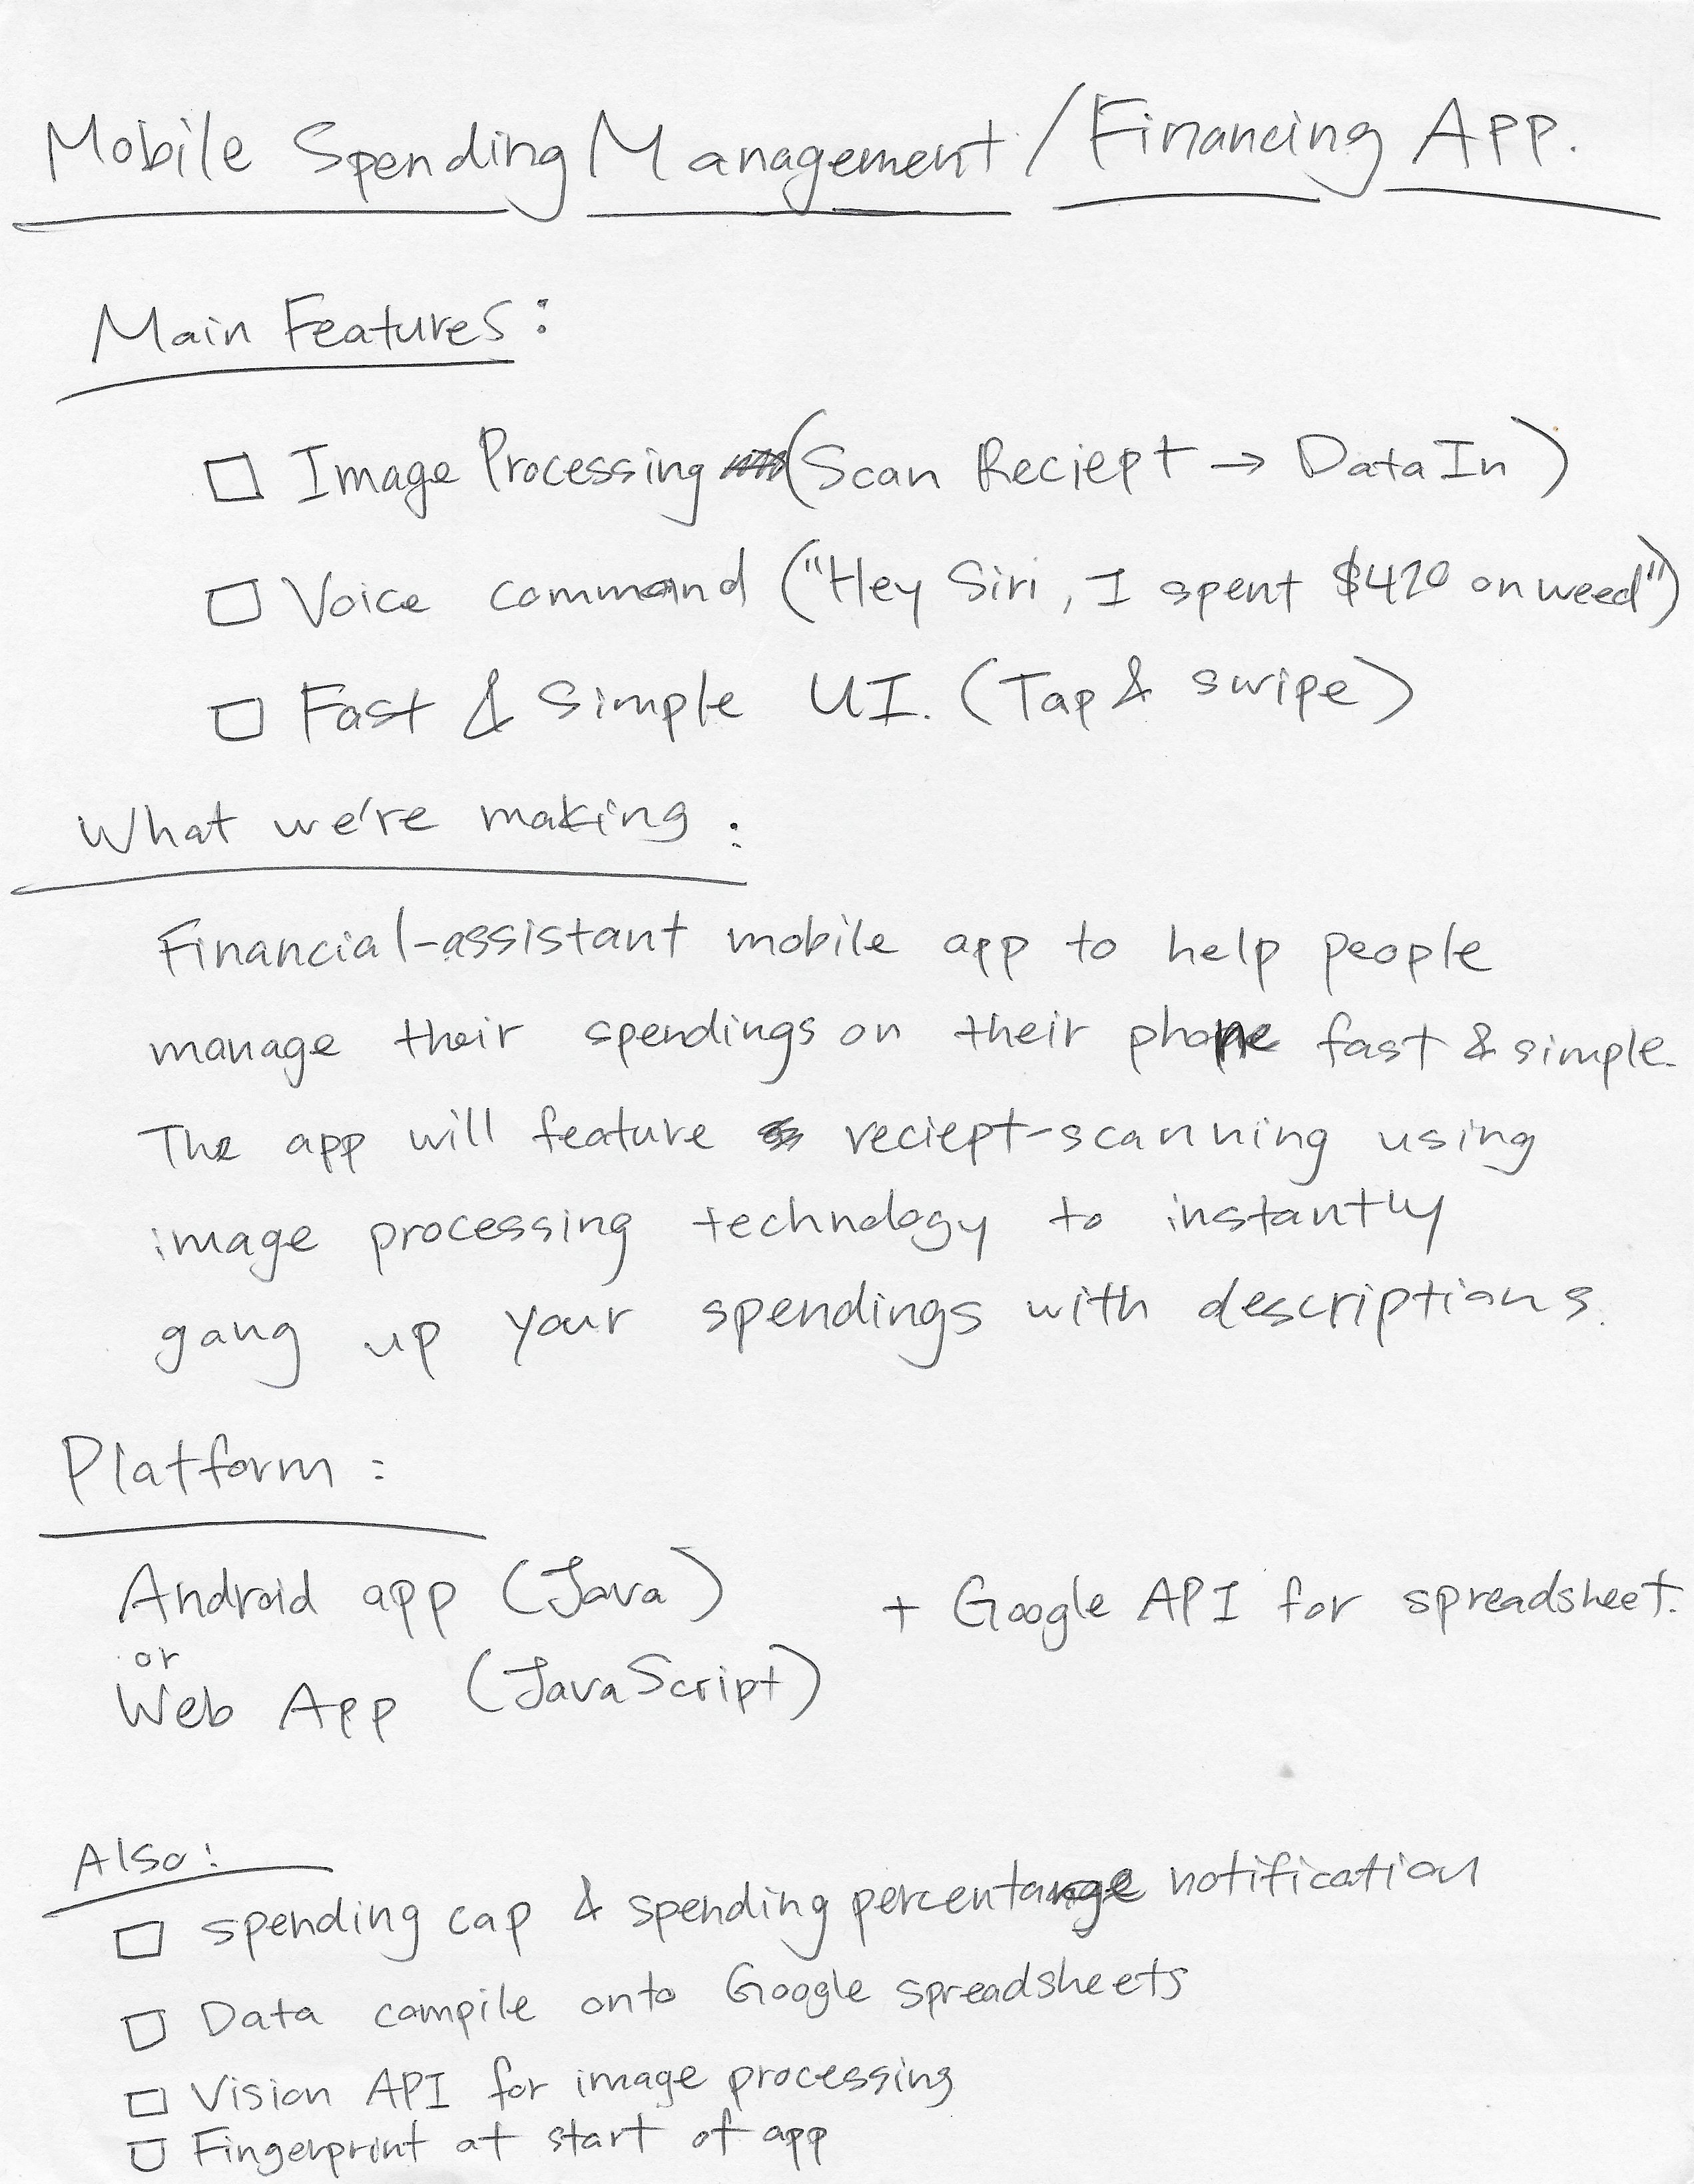 Mobile Spending Management / Financing App.
Main Features:
Image Processing (Scan Reciept → Data In)
Voice command ("Hey Siri, I spent $420 on weed")
Fast & Simple UI. (Tap & swipe)
What we're making:
Financial-assistant mobile app to help people
manage their spendings on their phone fast & simple.
The app will feature reciept-scanning using
image processing technology to instantly
gang up your spendings with descriptions.
Platform:
Android app (Java) + Google API for spreadsheet.
or
Web App (JavaScript)
Also:
spending cap & spending percentange notification
Data compile onto Google spreadsheets
Vision API for image processing
Fingerprint at start of app